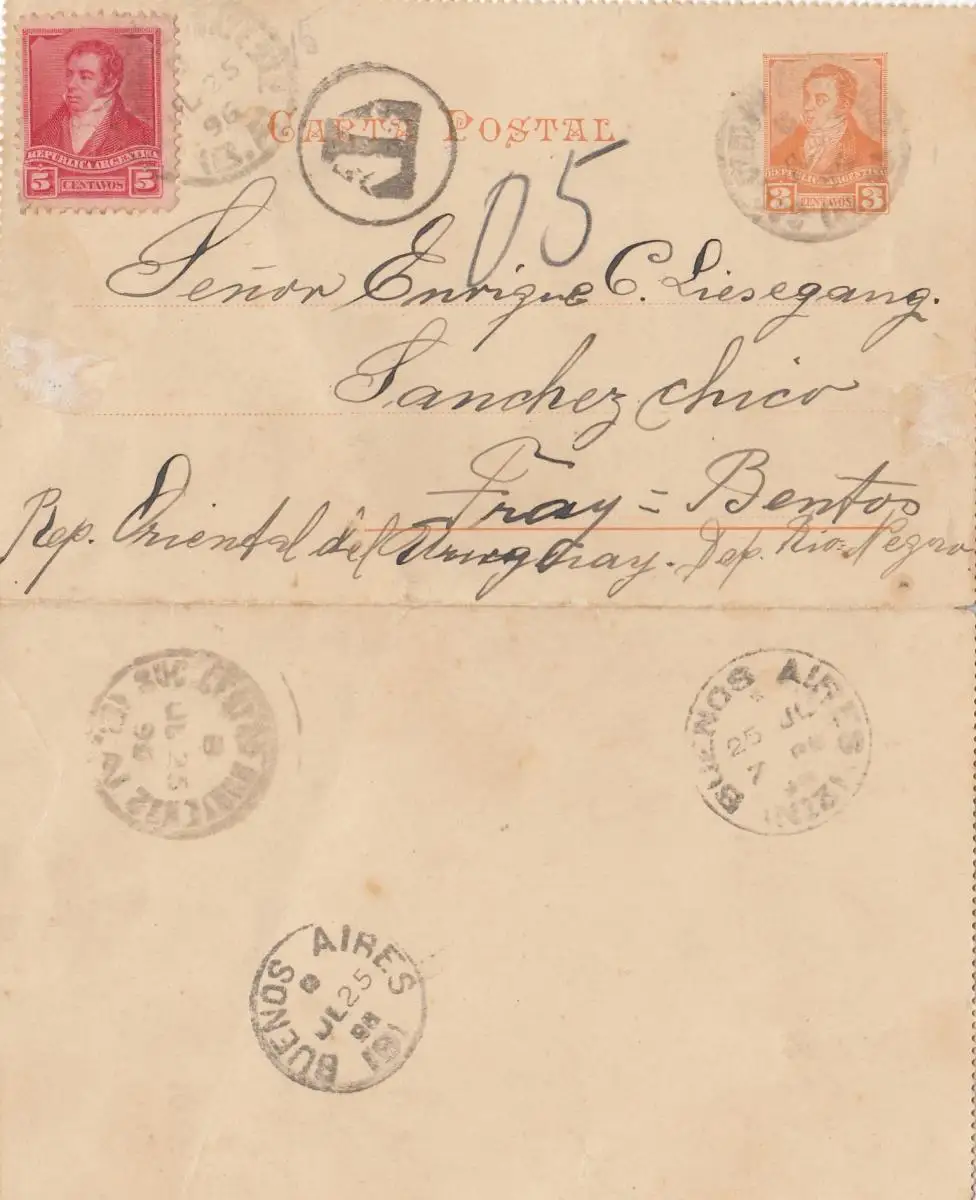 REPUBLICA ARGENTINA
5 CENTAVOS 5
JL 25
96
T
CARTA POSTAL
REPUBLICA ARGENTINA
3 CENTAVOS 3
05
Señor Enrique C. Liesegang.
Sanchez chico
Fray = Bentos
Rep. Oriental del Uruguay. Dep. Rio-Negro
SUC
8
JL 25
96
BUENOS AIRES
JL
25
BUENOS AIRES
JL 25
96